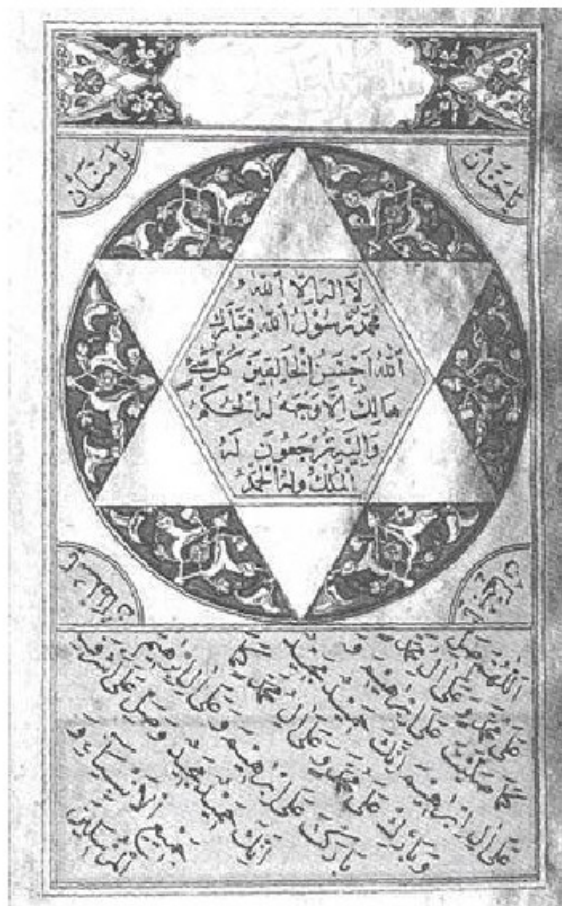 يا حنان
يا منان
لا اله الا الله
محمد رسول الله فتبارك
الله احسن الخالقين كل شئ
هالك الا وجهه له الحكم
واليه ترجعون له
الملك وله الحمد
اللهم صل
على محمد وعلى ال محمد
كما صليت على ابرهيم و
على ال ابرهيم انك حميد مجيد
وبارك على محمد وعلى ال محمد كما
باركت على ابرهيم وعلى ال ابرهيم
انك حميد مجيد وصل على اشرف
جميع الانبياء و
المرسلين